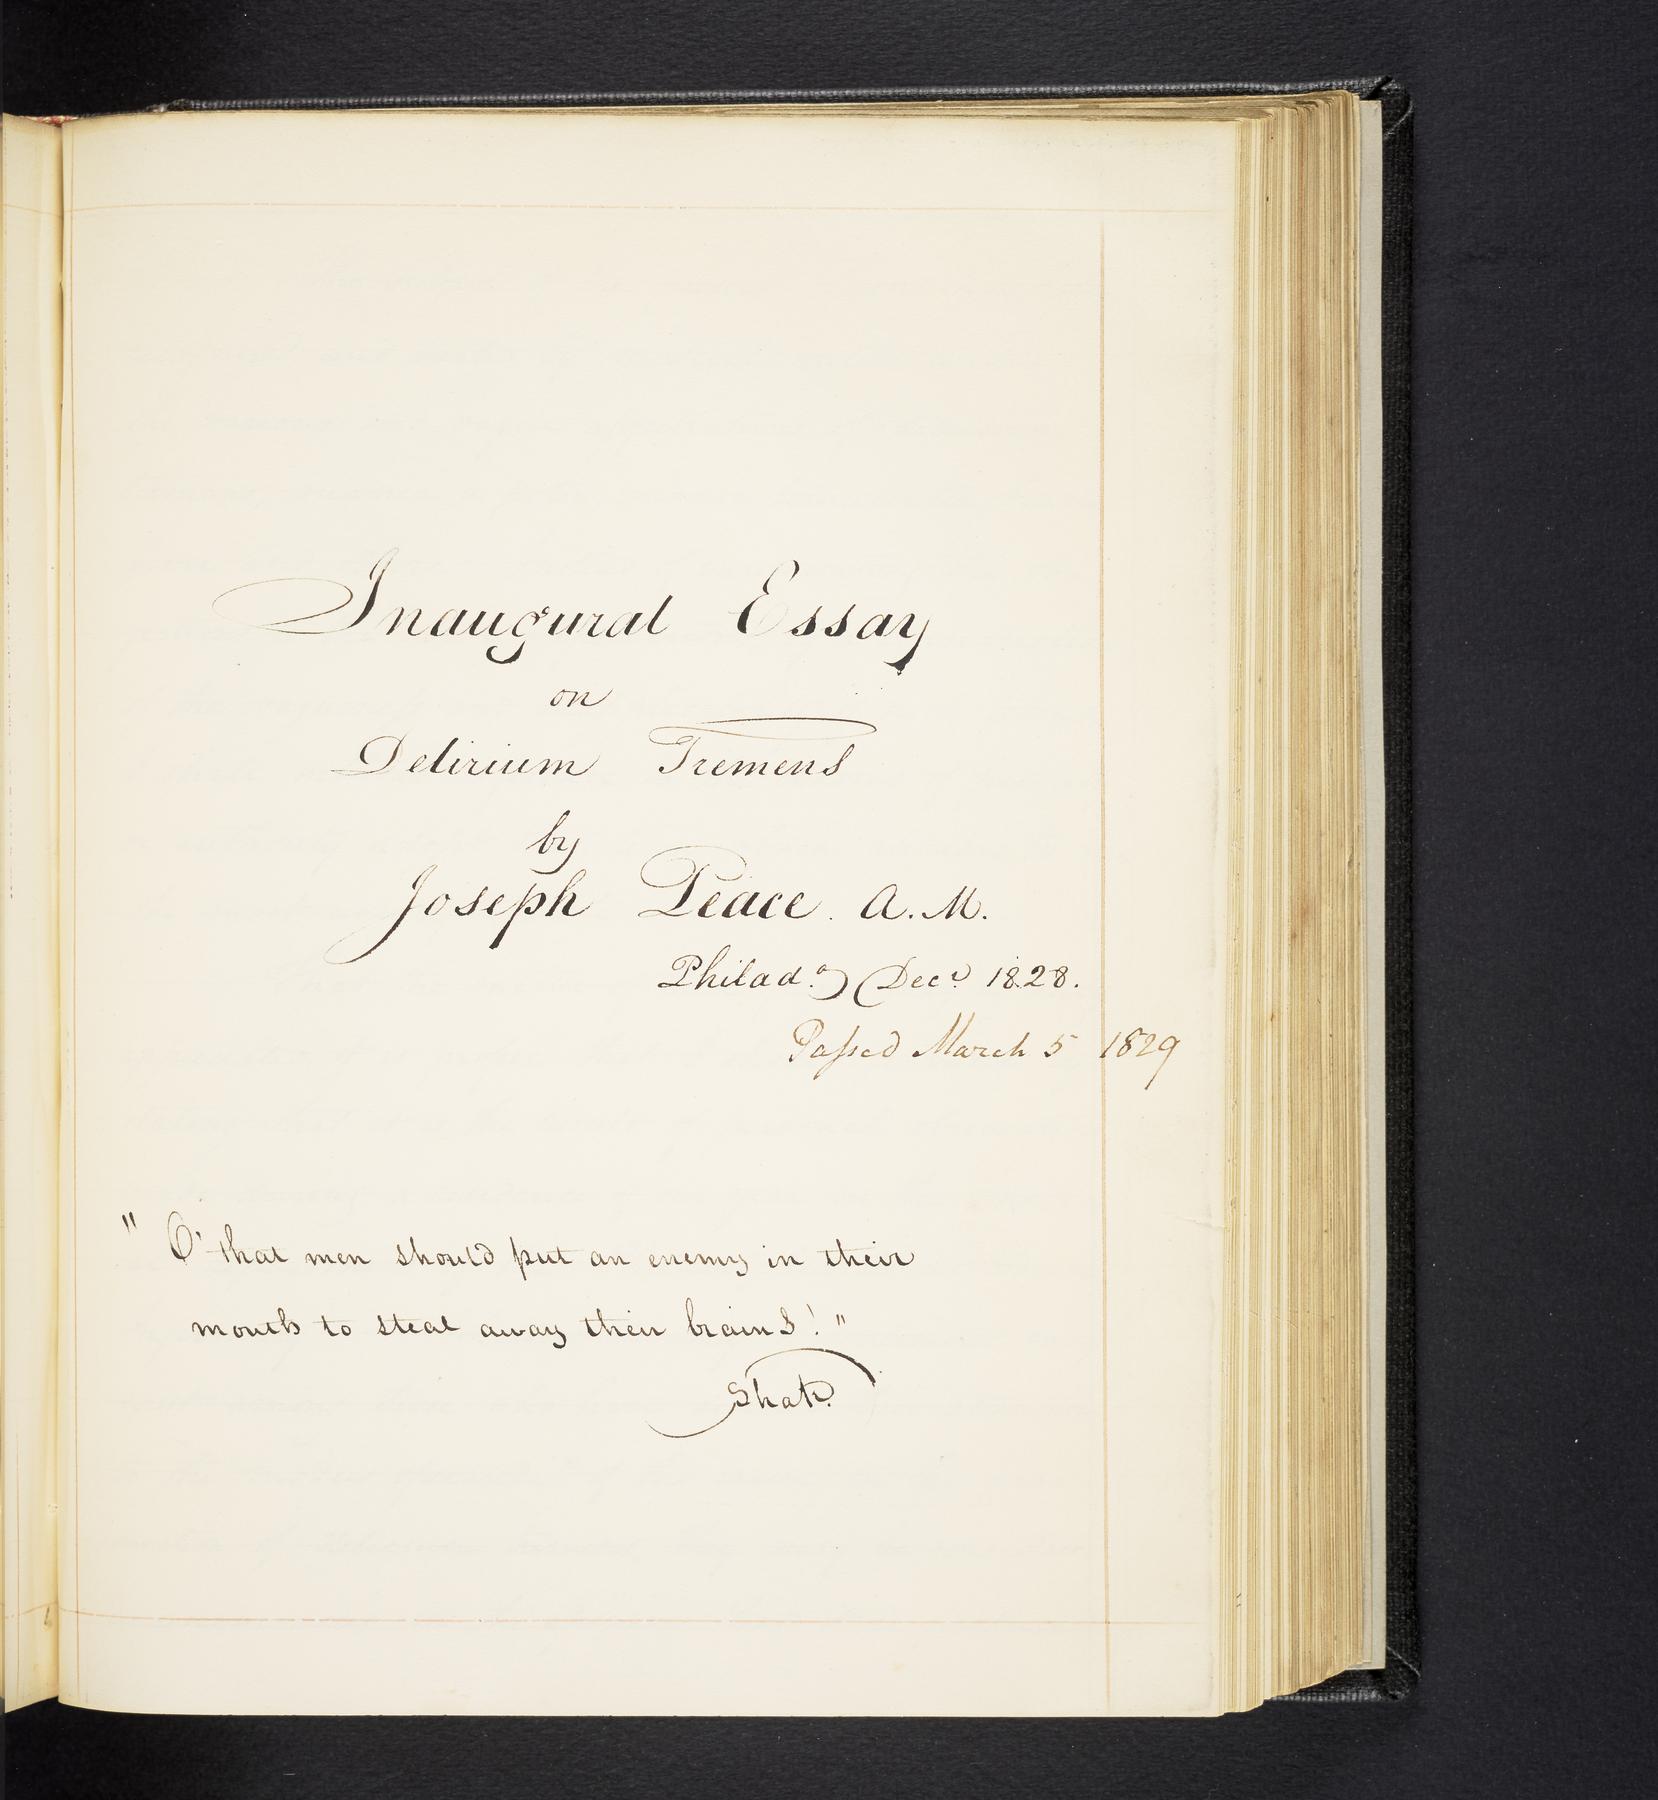 Inaugural Essay
on
Delirium Tremens
by
Joseph Peace. A.M.
Philadª. Decr 1828.
Passed March 5 1829
"O' that men should put an enemy in their
mouth to steal away their brains!"
Shak.